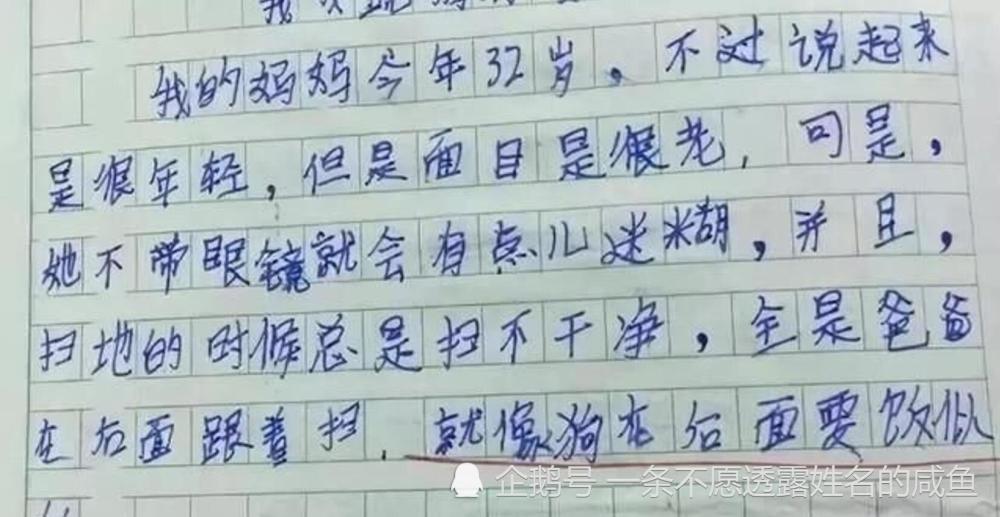 我的妈妈今年32岁，不过说起来
是很年轻，但是面目是很老，可是，
她不带眼镜就会有点儿迷糊，并且，
扫地的时候总是扫不干净，全是爸爸
在后面跟着扫．就像狗在后面要饭似
企鹅号 一条不愿透露姓名的咸鱼